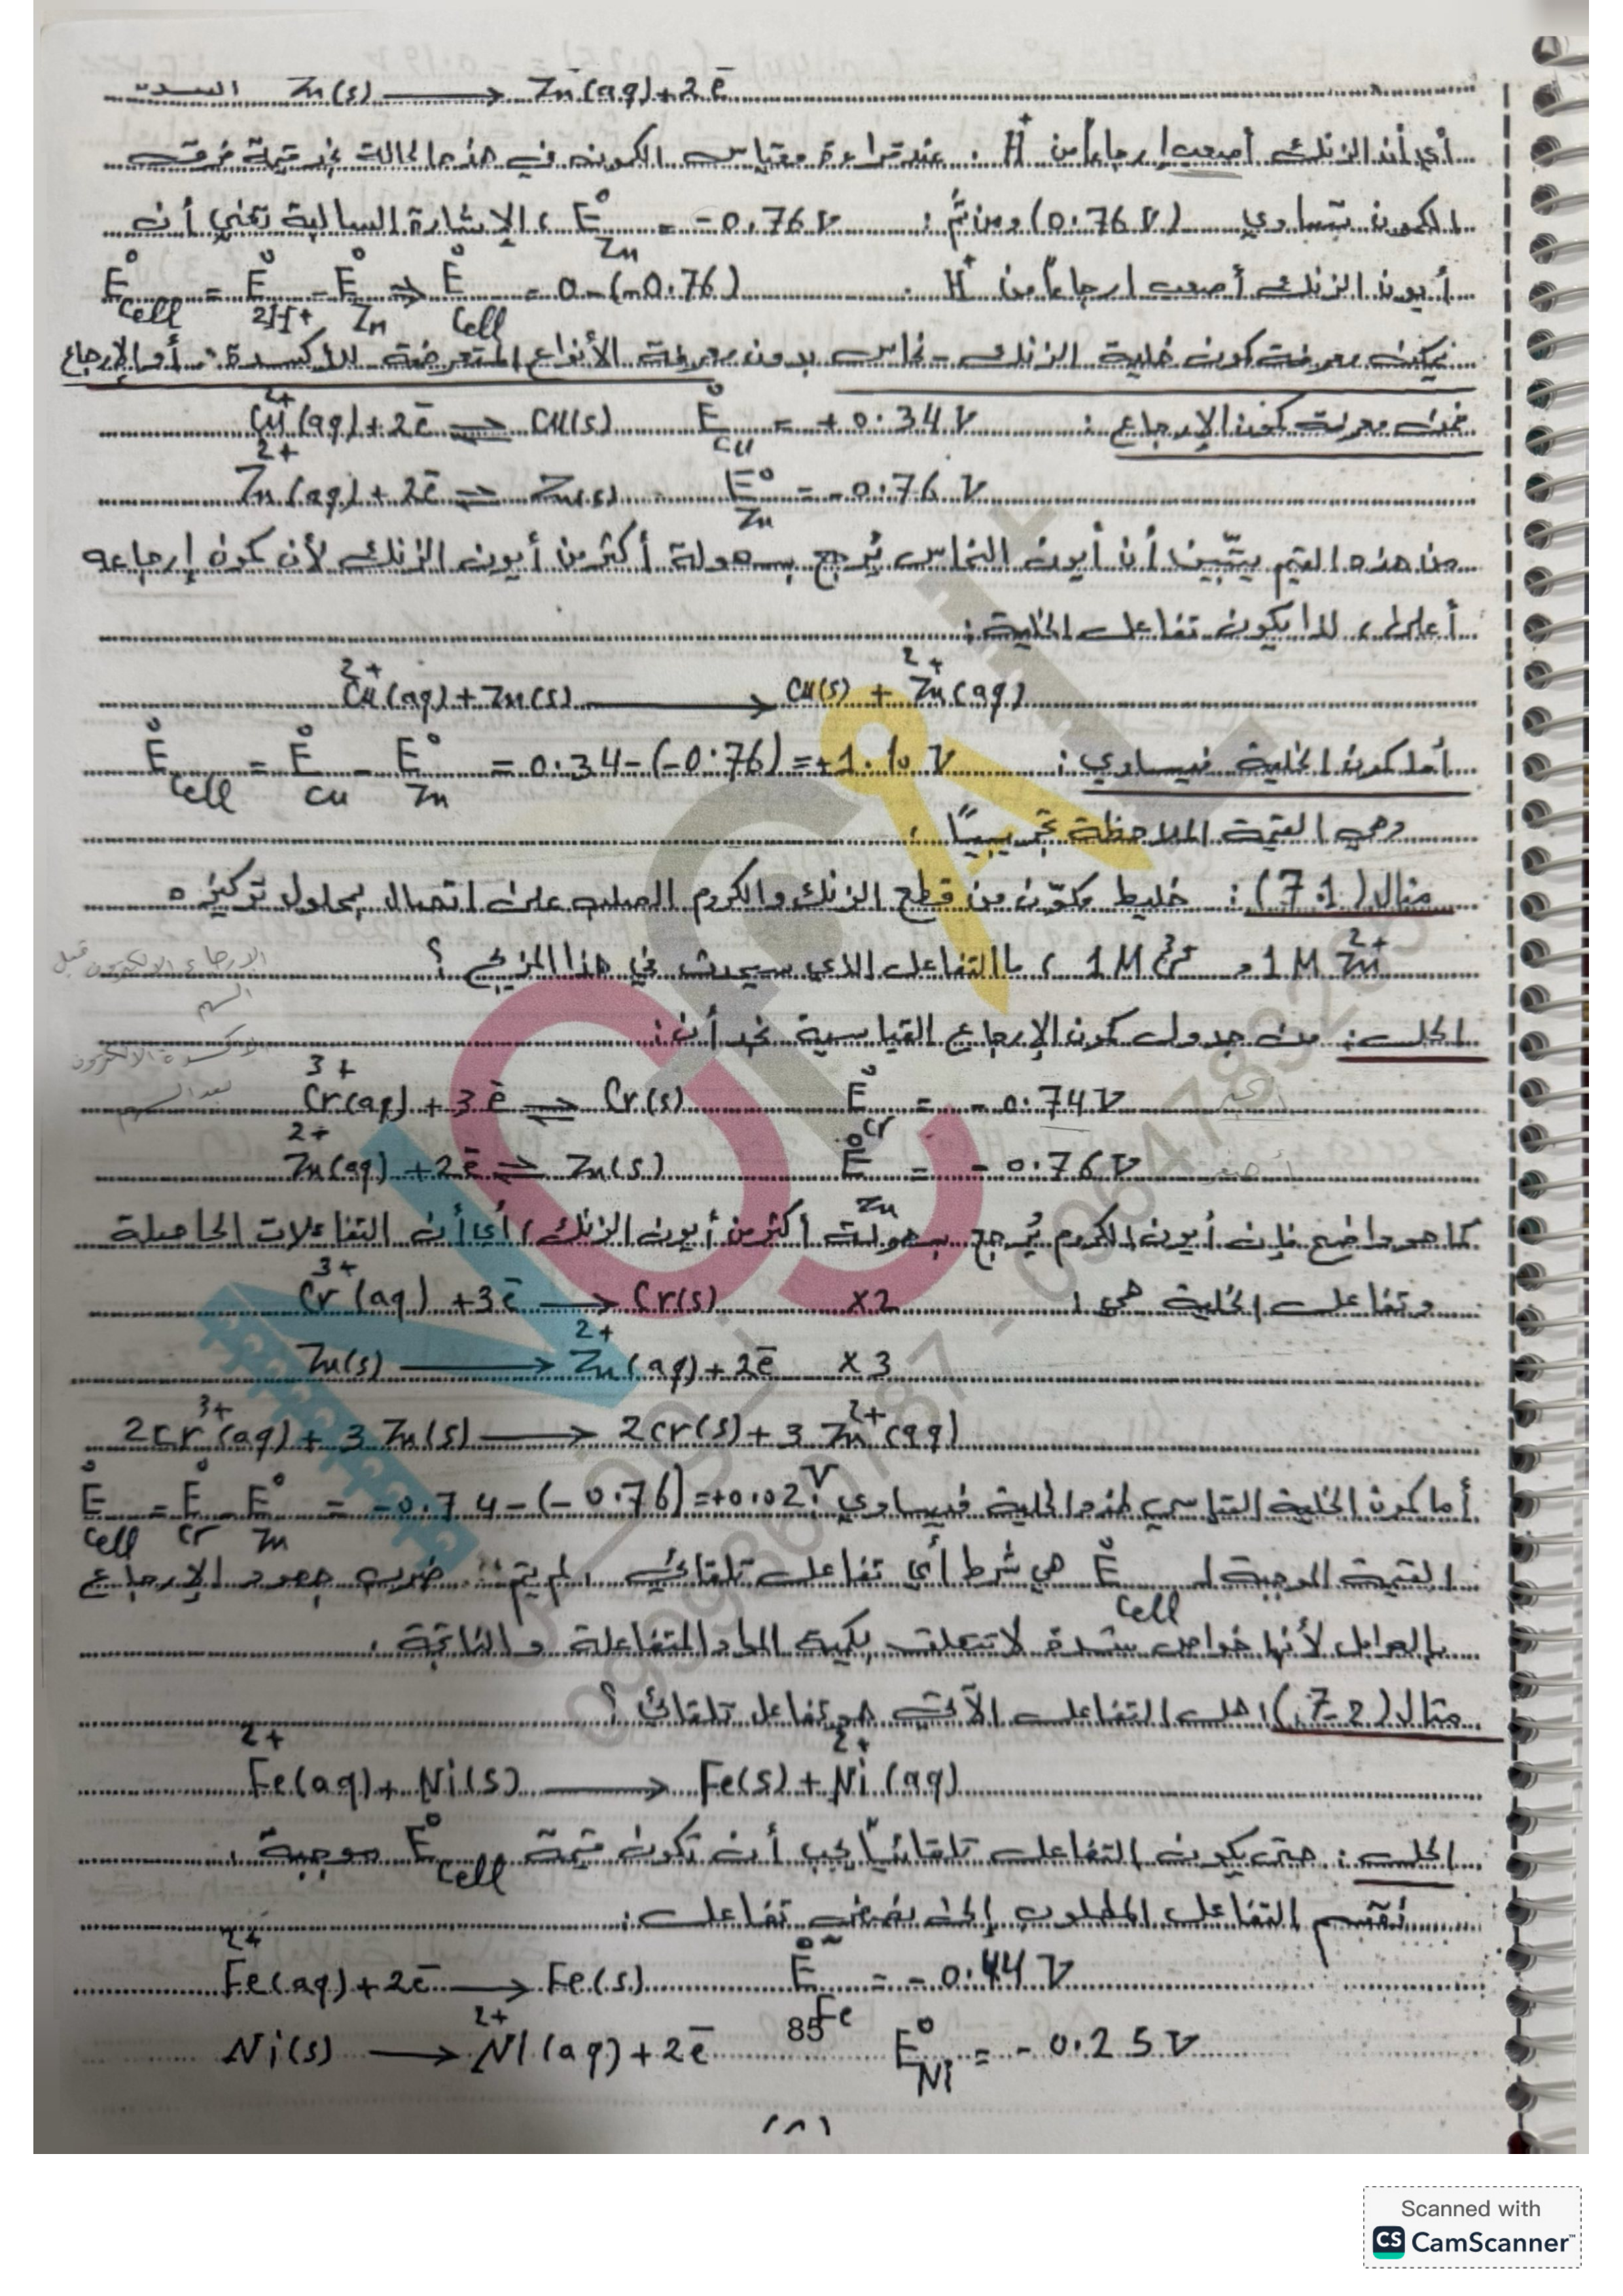 Zn(s) → Zn(aq)+2e⁻
أي أن الزنك أصعب إرجاعاً من H⁺ . عند قراءة مقياس الكمون في هذه الحالة نجد قيمة فرق
الكمون تساوي (0.76 V) ومن ثم : E°Zn = -0.76 V ، الإشارة السالبة تعني أن
أيون الزنك أصعب إرجاعاً من H⁺ . E°cell = E°2H⁺ - E°Zn ⇒ E°cell = 0-(-0.76)
يمكن معرفة كمون خلية الزنك - نحاس بدون معرفة الأنواع المتعرضة للأكسدة أو الإرجاع
فمن معرفة كمون الإرجاع : Cu²⁺(aq)+2e⁻ ⇌ Cu(s) E°Cu = +0.34 V
Zn²⁺(aq)+2e⁻ ⇌ Zn(s) E°Zn = -0.76 V
من هذه القيم يتبين أن أيون النحاس يُرجع بسهولة أكثر من أيون الزنك لأن كمون إرجاعه
أعلى ، لذا يكون تفاعل الخلية :
Cu²⁺(aq)+Zn(s) → Cu(s) + Zn²⁺(aq)
أما كمون الخلية فيساوي : E°cell = E°Cu - E°Zn = 0.34-(-0.76)=+1.10 V
وهي القيمة الملاحظة تجريبياً .
مثال (7.1) : خليط مكوّن من قطع الزنك والكروم الصلب على اتصال بمحلول تركيزه
1M Zn²⁺ و 1M Cr³⁺ ، ما التفاعل الذي سيحدث في هذا المزيج ؟
الارجاع الالكترون قبل
السهم
الحل : من جدول كمون الإرجاع القياسية نجد أن :
الاكسدة الالكترون
بعد السهم
Cr³⁺(aq) + 3e⁻ ⇌ Cr(s) E°Cr = -0.74 V أكبر
Zn²⁺(aq) +2e⁻ ⇌ Zn(s) E°Zn = -0.76 V أصغر
كما هو واضح فإن أيون الكروم يُرجع بسهولة أكثر من أيون الزنك ، أي أن التفاعلات الحاصلة
وتفاعل الخلية هي : Cr³⁺(aq) +3e⁻ → Cr(s) ×2
Zn(s) → Zn²⁺(aq)+2e⁻ ×3
2Cr³⁺(aq) + 3Zn(s) → 2Cr(s)+3Zn²⁺(aq)
أما كمون الخلية القياسي لهذه الخلية فيساوي E°cell = E°Cr - E°Zn = -0.74-(-0.76)=+0.02 V
القيمة الموجبة لـ E°cell هي شرط أي تفاعل تلقائي . لم يتم ضرب جهود الإرجاع
بالعوامل لأنها خواص شدة لا تتعلق بكمية المواد المتفاعلة والناتجة .
مثال (7-2) : هل التفاعل الآتي هو تفاعل تلقائي ؟
Fe²⁺(aq)+Ni(s) → Fe(s)+Ni²⁺(aq)
الحل : حتى يكون التفاعل تلقائياً يجب أن تكون قيمة E°cell موجبة .
نقسم التفاعل المطلوب إلى نصفي تفاعل :
Fe²⁺(aq)+2e⁻ → Fe(s) E°Fe = -0.44 V
Ni(s) → Ni²⁺(aq)+2e⁻ E°Ni = -0.25 V
85
Scanned with
CS CamScanner™